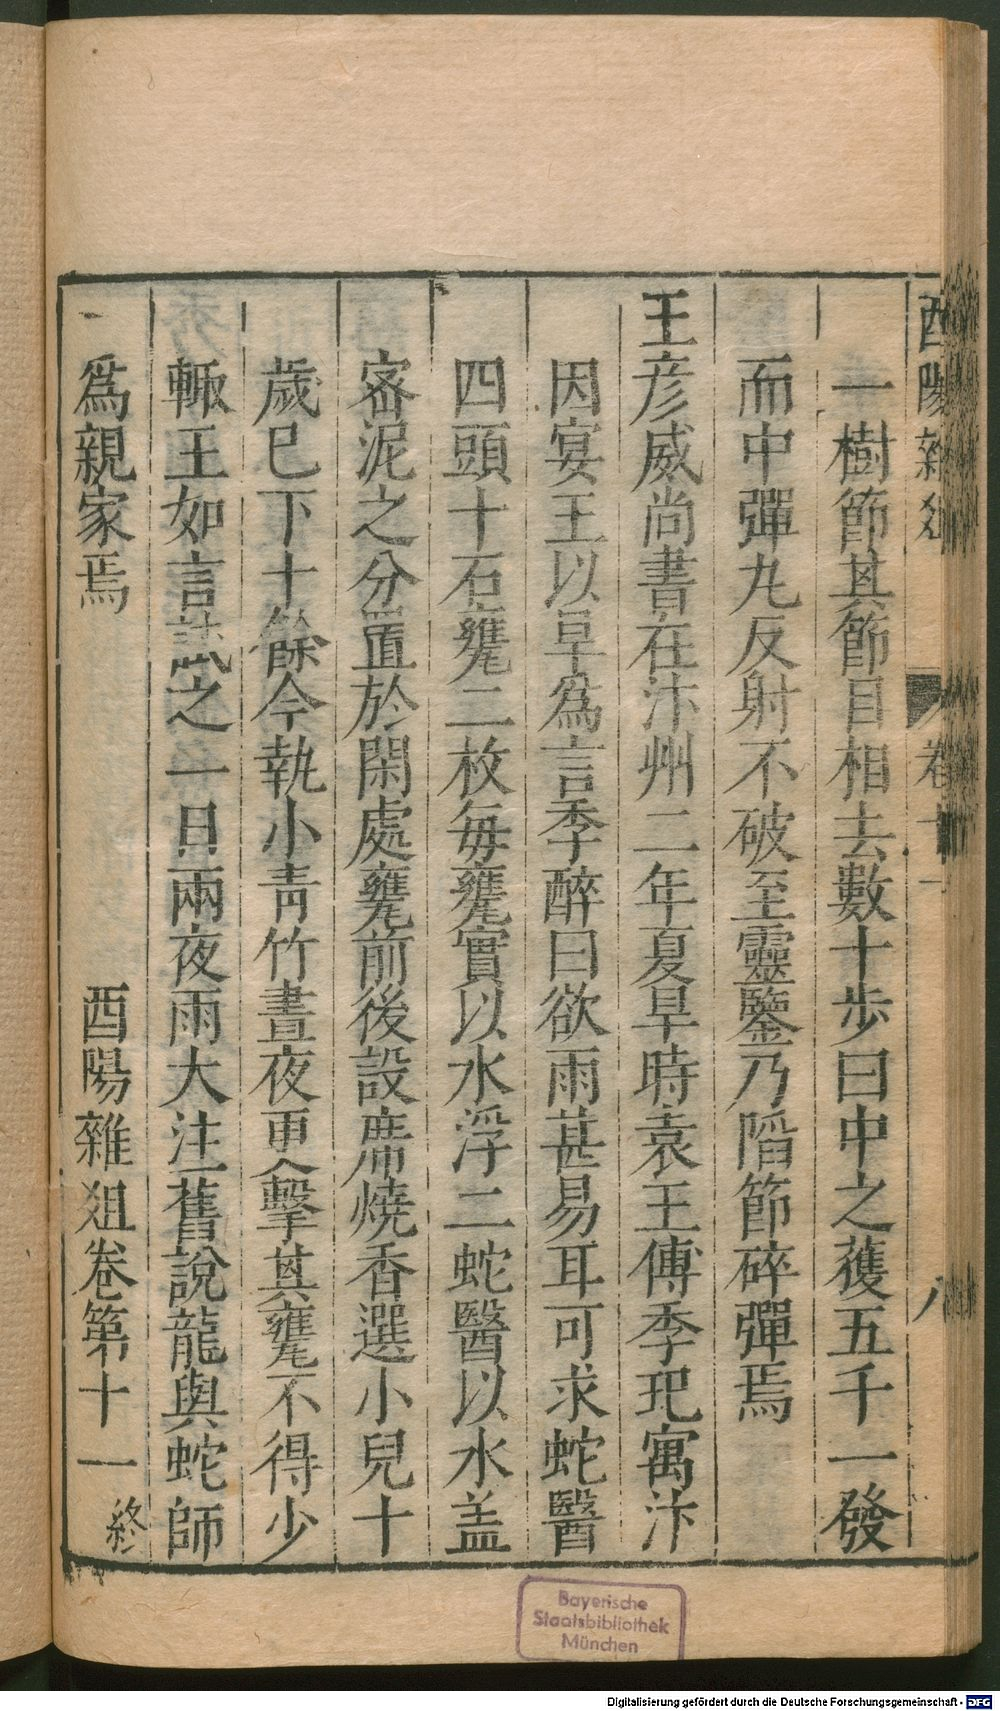 酉陽雜俎 卷十一 八
一樹節其節目相去數十步曰中之獲五千一發
而中彈丸反射不破至靈鑒乃䧟節碎彈焉
王彦威尚書在汴州二年夏旱時袁王傅季𤣱寓汴
因宴王以旱為言季醉曰欲雨甚易耳可求蛇醫
四頭十石甕二枚每甕實以水浮二蛇醫以水盖
宻泥之分置於閑處甕前後設席燒香選小兒十
歲已下十餘令執小青竹晝夜更擊其甕不得少
輙王如言試之一日兩夜雨大注舊說龍與蛇師
為親家焉
酉陽雜俎卷第十一 終
Bayerische
Staatsbibliothek
München
Digitalisierung gefördert durch die Deutsche Forschungsgemeinschaft - DFG